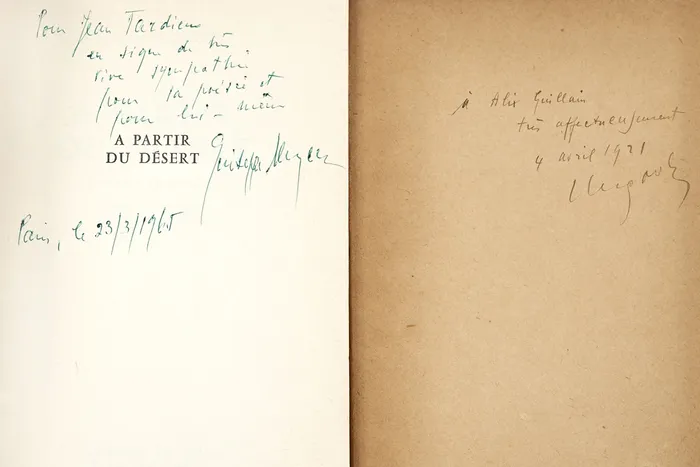 Pour Jean Tardieu
en signe de très
vive sympathie
pour sa poésie et
pour lui-même
A PARTIR
DU DÉSERT
Giuseppe Ungaretti
Paris, le 23/3/1965
à Alix Guillain
très affectueusement
4 avril 1921
Ungaretti